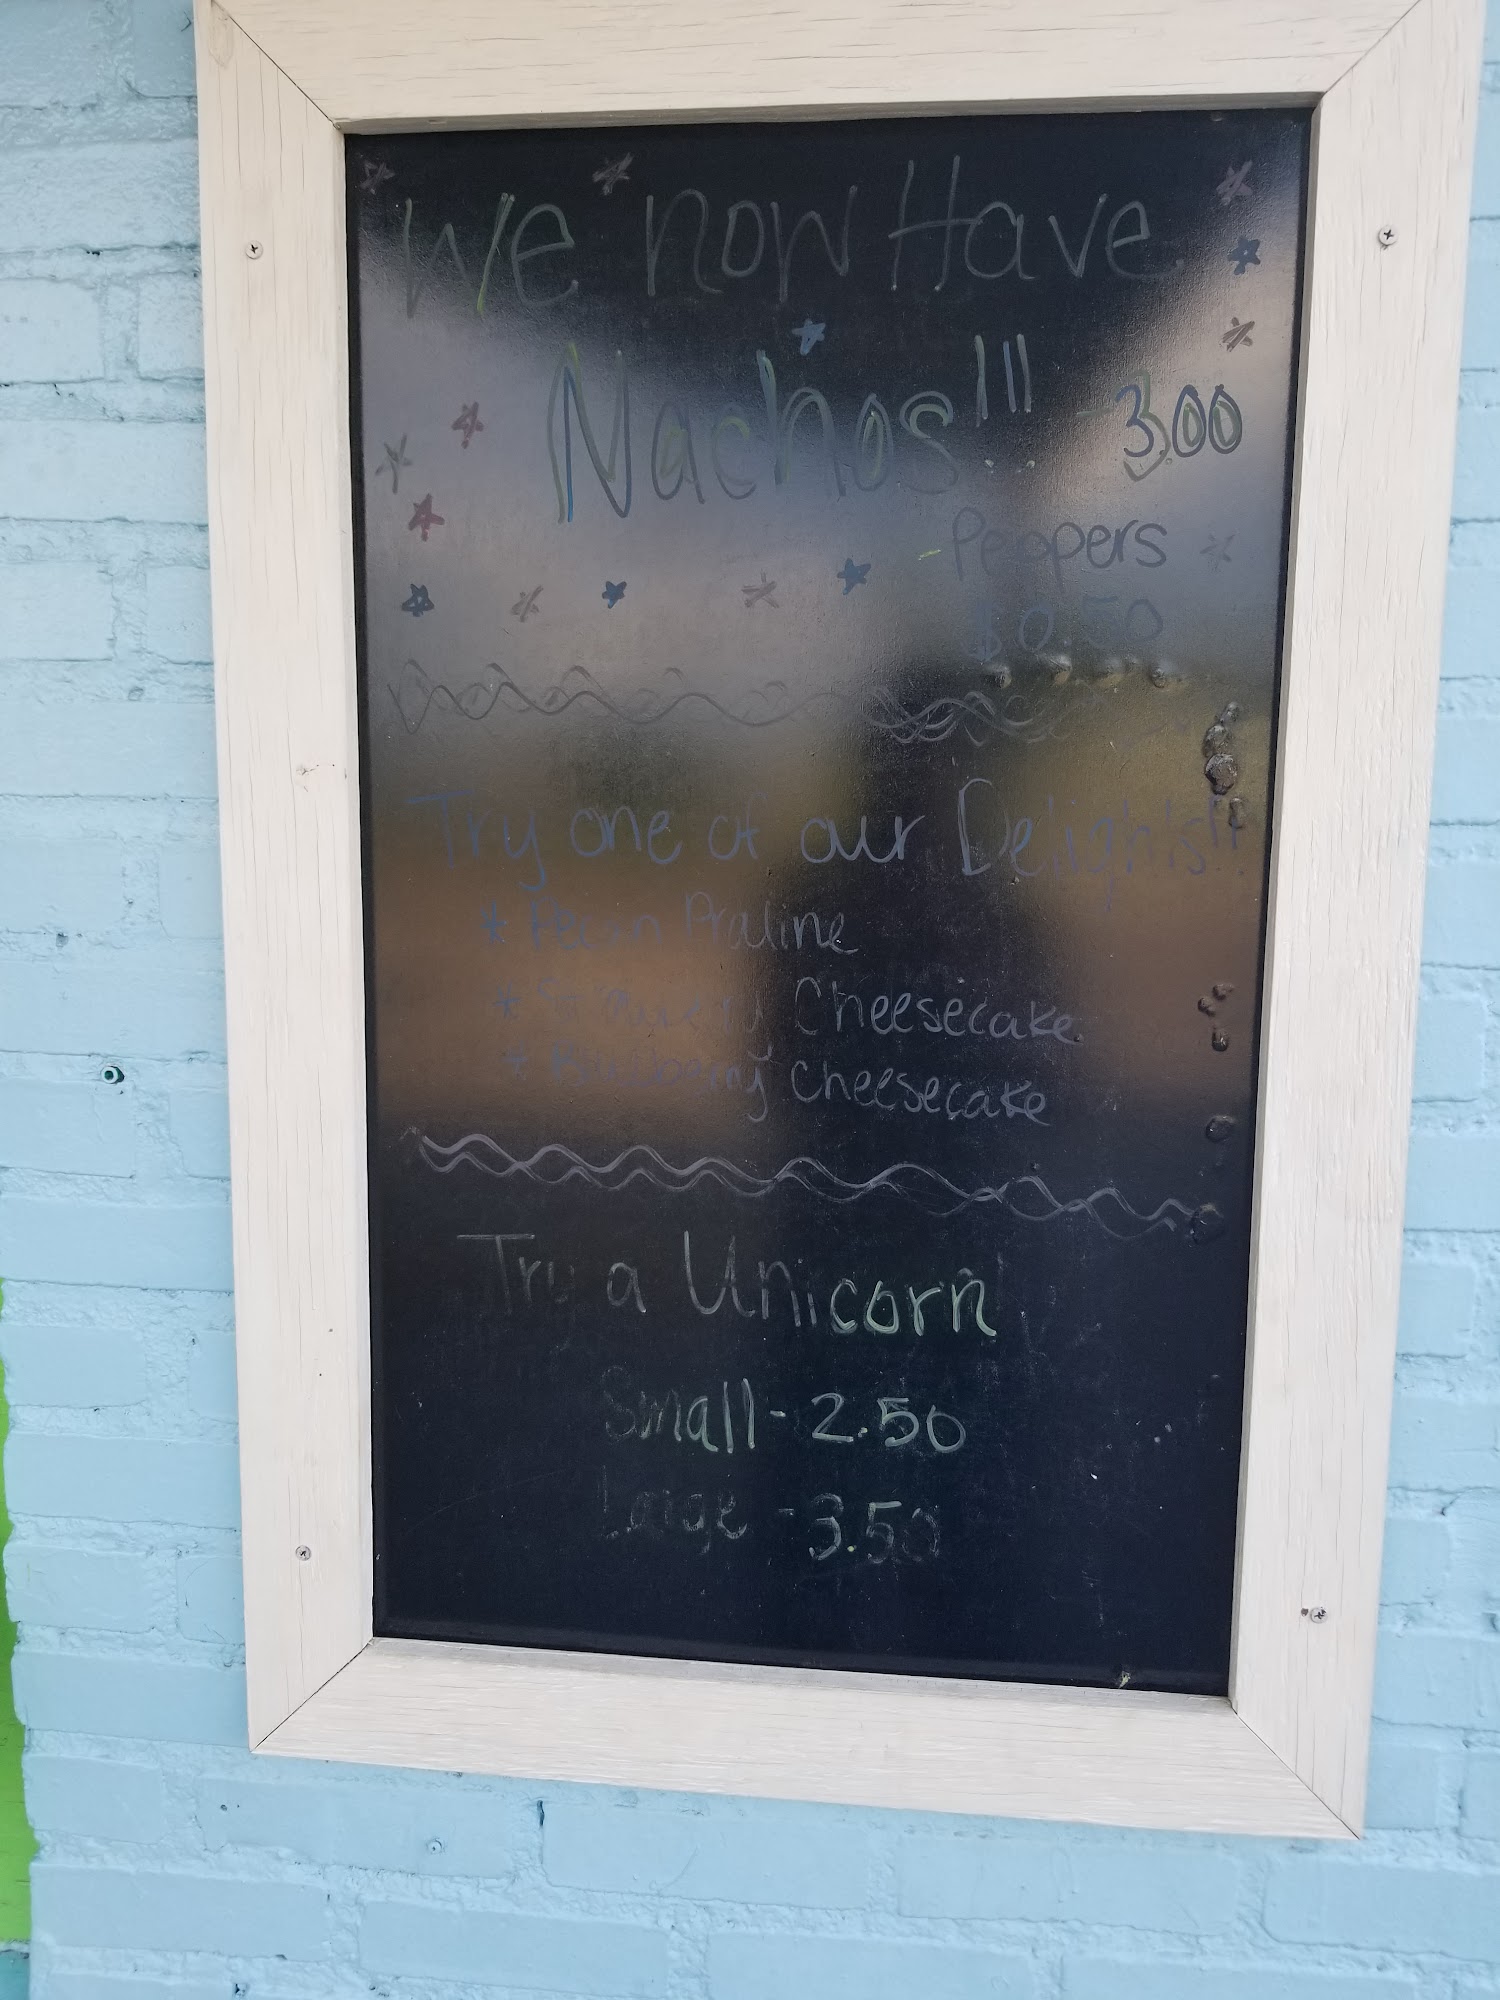 We now Have
Nachos!!! 3.00
Peppers
$0.50
Try one of our Delights!!
* Pecan Praline
* Strawberry Cheesecake
* Blueberry Cheesecake
Try a Unicorn
Small - 2.50
Large - 3.50